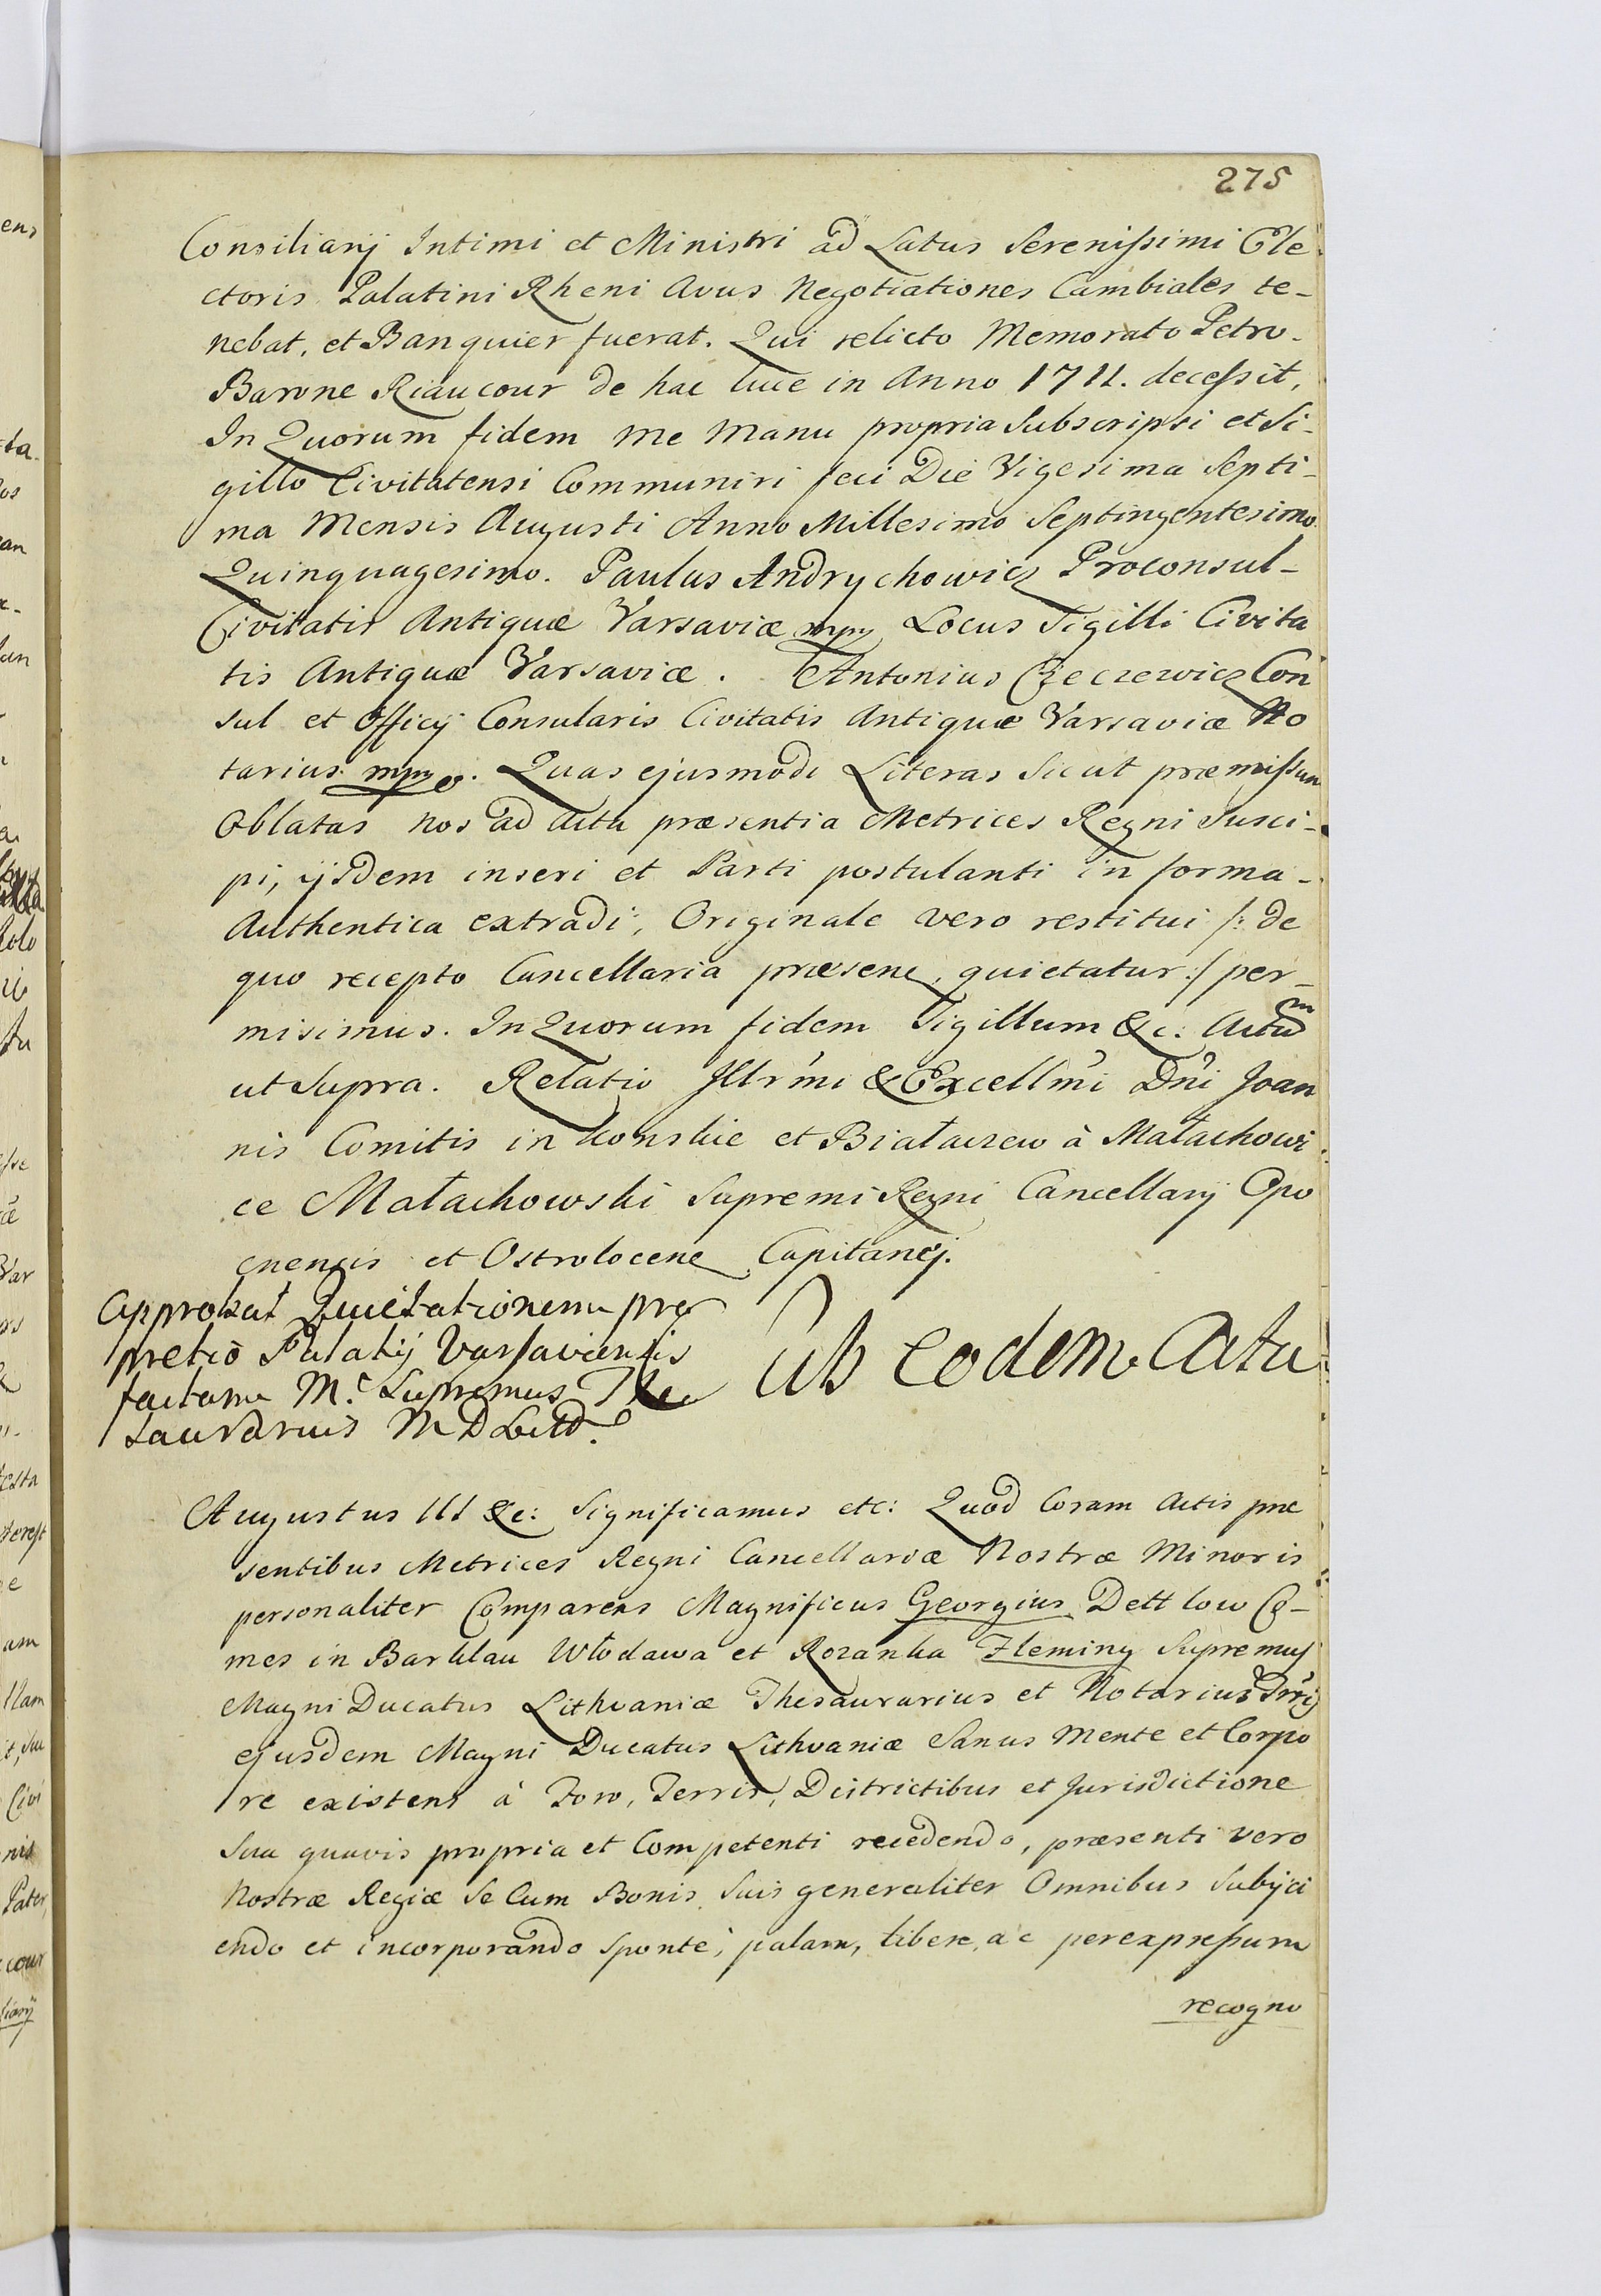 275
Consiliarij Intimi et Ministri ad Latus Serenissimi Ele-
ctoris Palatini Rheni Avus Negotiationes Cambiales te-
nebat, et Banquier fuerat. Qui relicto Memorato Petro
Barone Riaucour de hac luce in Anno 1711. decessit,
In Quorum fidem me Manu propria Subscripsi et Si-
gillo Civitatensi Communiri feci Die Vigesima Septi-
ma Mensis Augusti Anno Millesimo Septingentesimo
Quinquagesimo. Paulus Andrychowicz Proconsul
Civitatis Antiquæ Varsaviæ mpp Locus Sigilli Civita
tis Antiquæ Varsaviæ. Antonius Czeczewicz Con
sul et Officij Consularis Civitatis Antiquæ Varsaviæ No
tarius mpp. Quas ejusmodi Literas Sicut præmissum
Oblatas nos ad Acta præsentia Metrices Regni Susci-
pi, ijsdem inseri et Parti postulanti in forma
Authentica extradi, Originale vero restitui /: de
quo recepto Cancellaria præsens quietatur :/ per-
misimus. In Quorum fidem Sigillum &c: Actum
ut Supra. Relatio Illr̃mi & Excellm̃i Dñi Joan
nis Comitis in Konskie et Białaczew à Małachowi
ce Małachowski Supremi Regni Cancellarij Opo
cnensis et Ostrolocens Capitanej.
Approbat Quietationem pro
pretio Palatij Varsaviensis
factam M.c Supremus The
saurarius M D Litt.
Sub eodem Actu
Augustus III &c: Significamus etc: Quod Coram Actis præ
sentibus Metrices Regni Cancellariæ Nostræ Minoris
personaliter Comparens Magnificus Georgius Dettlow Co-
mes in Barklau Włodawa et Rozanka Fleming Supremus
Magni Ducatus Lithvaniæ Thesaurarius et Notarius
ejusdem Magni Ducatus Lithvaniæ Sanus Mente et Corpo
re existens à Foro, Terris, Districtibus et Jurisdictione
Sua quavis propria et Competenti recedendo, præsenti vero
Nostræ Regiæ Se Cum Bonis Suis generaliter Omnibus Subijci
endo et incorporando Sponte, palam, libere, ac per expressum
recogno